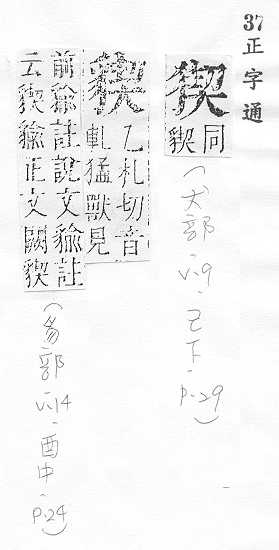 37 正字通
猰 同
䝟
(犬部、v.9、己下、p.29)
䝟 乙札切音
軋猛獸見
前貐註說文貐註
云䝟貐正文闕䝟
(豸部、v.14、酉中、p.24)